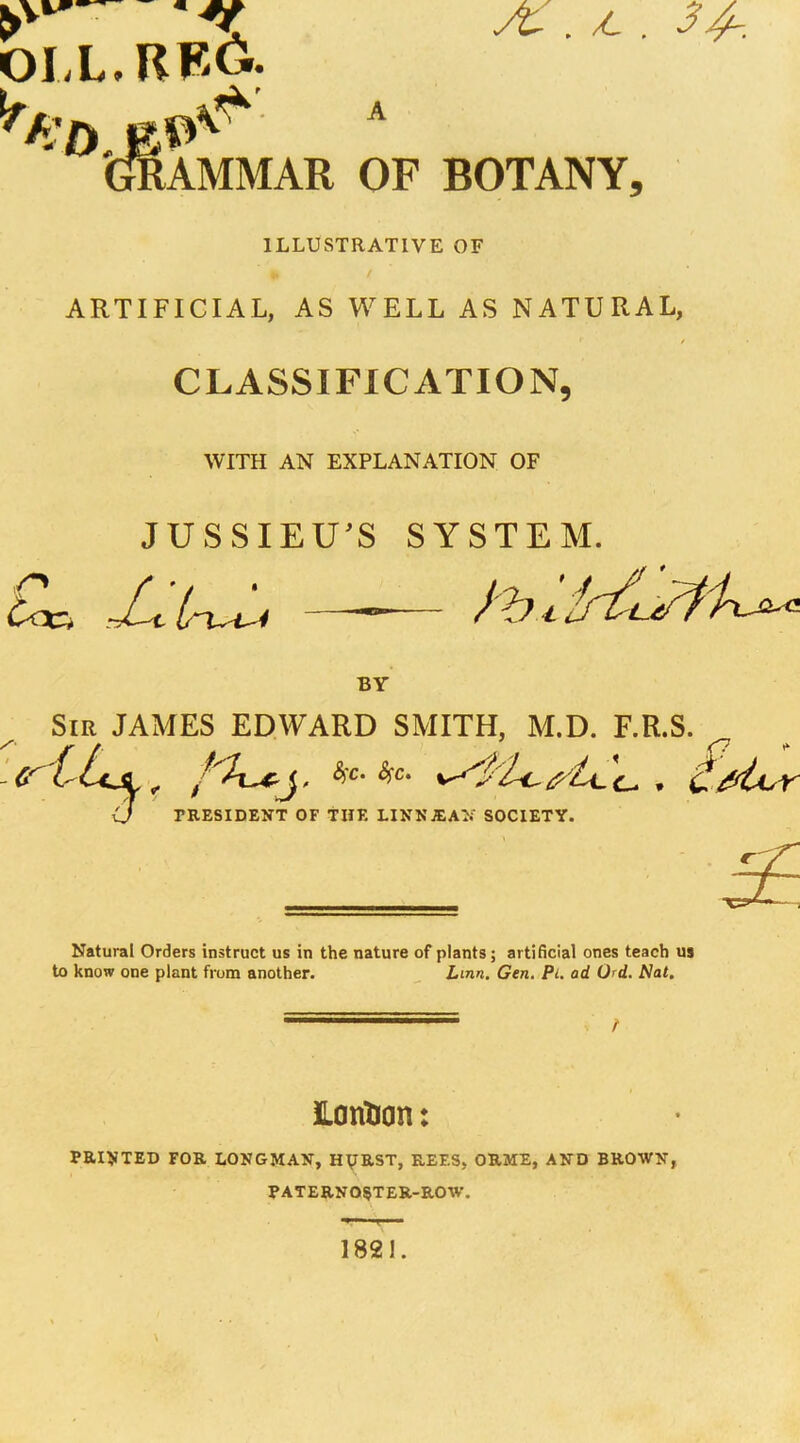 OLL. REG.
MED. ED
A
GRAMMAR OF BOTANY,
ILLUSTRATIVE OF
ARTIFICIAL, AS WELL AS NATURAL,
CLASSIFICATION,
WITH AN EXPLANATION OF
JUSSIEU'S SYSTEM.
Ex Libris
BY
SIR JAMES EDWARD SMITH, M.D. F.R.S.
&c. &c.
PRESIDENT OF THE LINNÆAN SOCIETY.
Natural Orders instruct us in the nature of plants; artificial ones teach us
to know one plant from another. Linn. Gen. Pl. ad Ord. Nat.
London:
PRINTED FOR LONGMAN, HURST, REES, ORME, AND BROWN,
PATERNOSTER-ROW.
1821.